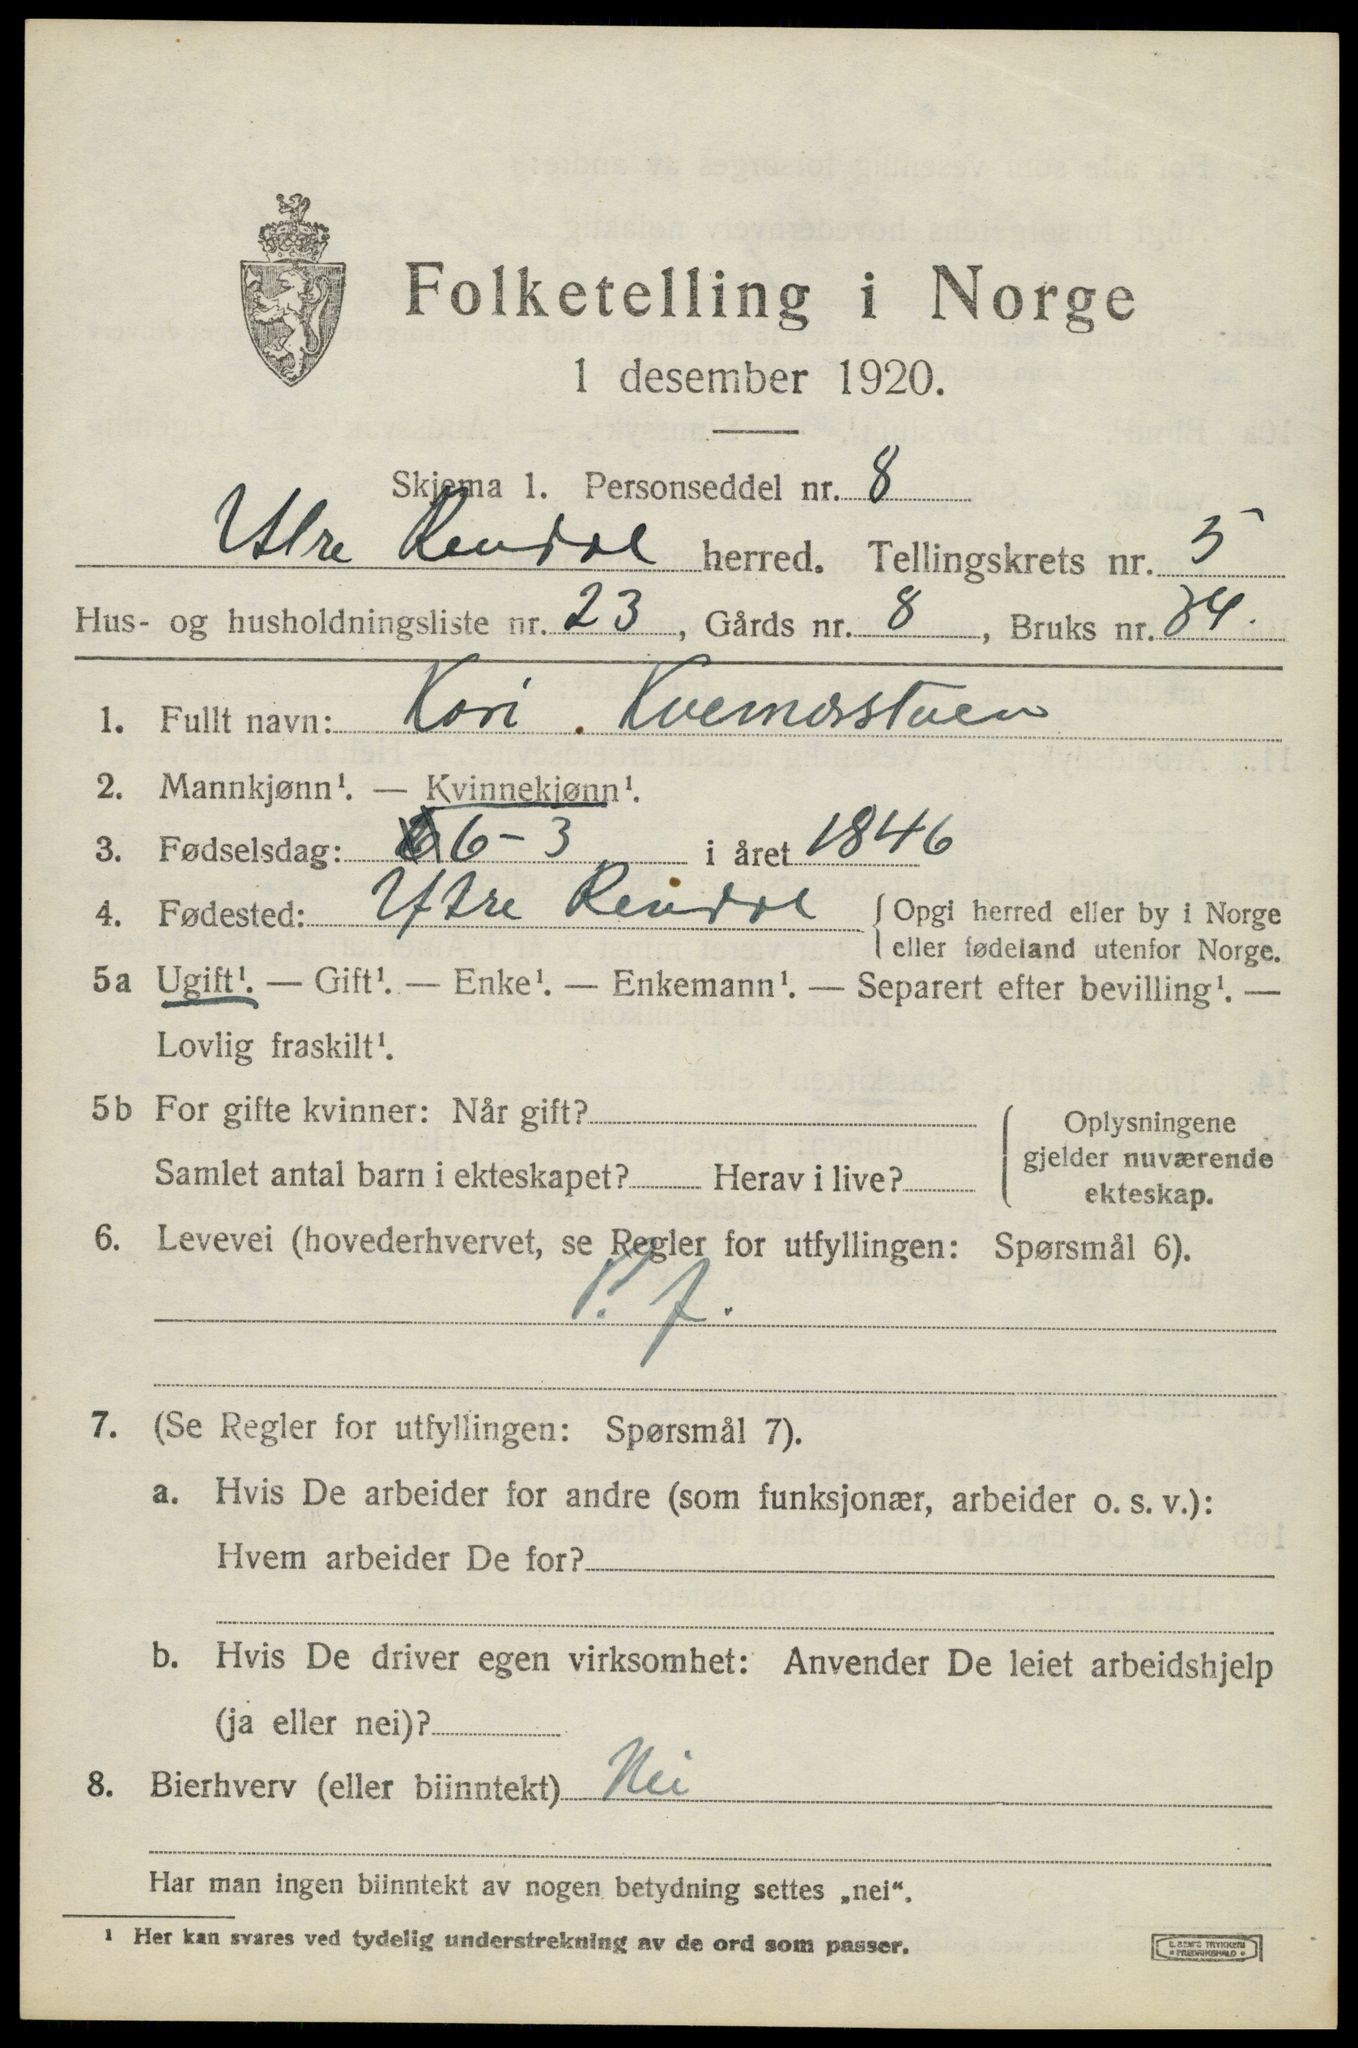 Folketelling i Norge
1 desember 1920.
Skjema 1. Personseddel nr. 8
Ytre Rendal herred. Tellingskrets nr. 5
Hus- og husholdningsliste nr. 23, Gårds nr. 8, Bruks nr. 34.
1. Fullt navn: Kari . Kvernesstuen
2. Mannkjønn¹. — Kvinnekjønn¹.
3. Fødselsdag: 6-3 i året 1846
4. Fødested: Ytre Rendal { Opgi herred eller by i Norge
eller fødeland utenfor Norge.
5a Ugift¹. — Gift¹. — Enke¹. — Enkemann¹. — Separert efter bevilling¹. —
Lovlig fraskilt¹.
5b For gifte kvinner: Når gift?
Samlet antal barn i ekteskapet? Herav i live?
Oplysningene
gjelder nuværende
ekteskap.
6. Levevei (hovederhvervet, se Regler for utfyllingen: Spørsmål 6).
7. (Se Regler for utfyllingen: Spørsmål 7).
a. Hvis De arbeider for andre (som funksjonær, arbeider o. s. v.):
Hvem arbeider De for?
b. Hvis De driver egen virksomhet: Anvender De leiet arbeidshjelp
(ja eller nei)?
8. Bierhverv (eller biinntekt) Nei
Har man ingen biinntekt av nogen betydning settes „nei“.
¹ Her kan svares ved tydelig understrekning av de ord som passer.